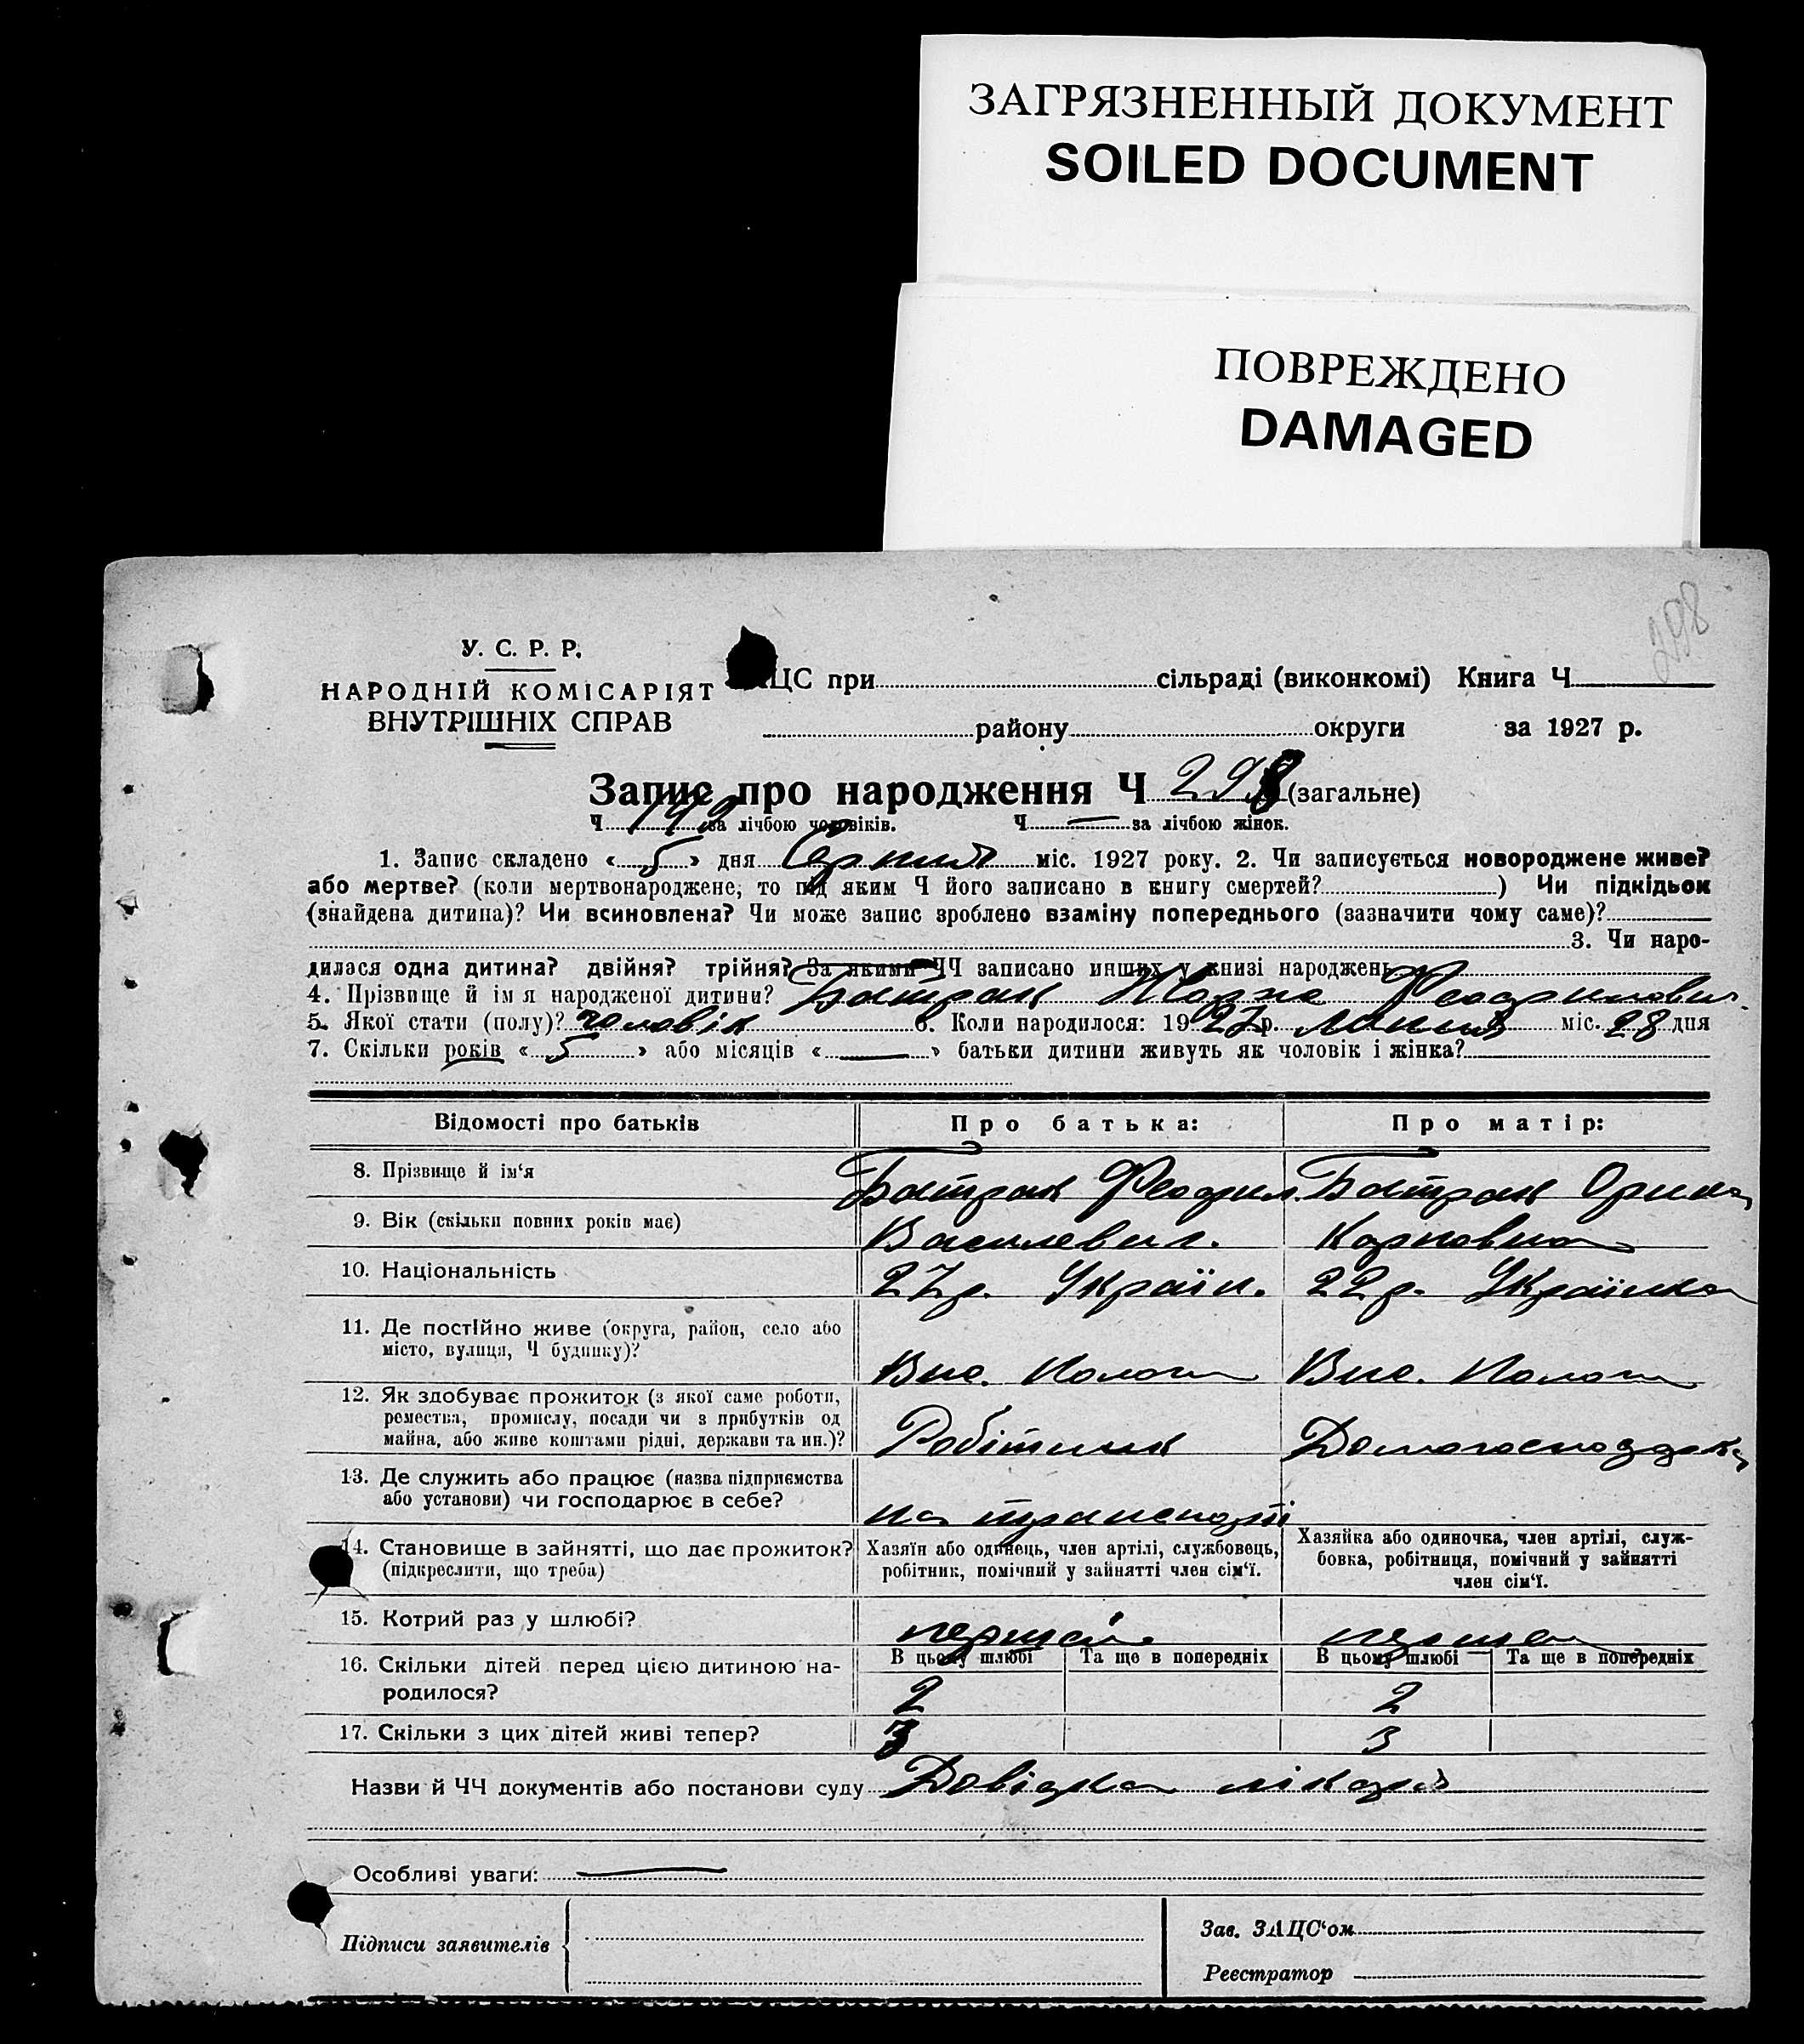 ЗАГРЯЗНЕННЫЙ ДОКУМЕНТ
SOILED DOCUMENT
ПОВРЕЖДЕНО
DAMAGED
298
У. С. Р. Р.
НАРОДНІЙ КОМІСАРІЯТ
ВНУТРІШНІХ СПРАВ
АЦС при сільраді (виконкомі) Книга Ч
району округи за 1927 р.
Запис про народження Ч 298 (загальне)
Ч 149 за лічбою чоловіків. Ч — за лічбою жінок.
1. Запис складено « 5 » дня Серпня міс. 1927 року. 2. Чи записується новороджене живе?
або мертве? (коли мертвонароджене, то під яким Ч його записано в книгу смертей? ) Чи підкідьок
(знайдена дитина)? Чи всиновлена? Чи може запис зроблено взаміну попереднього (зазначити чому саме)?
3. Чи наро-
дилася одна дитина? двійня? трійня? За якими ЧЧ записано инших у книзі народжень
4. Прізвище й ім я народженої дитини? Батрак Феофилович
5. Якої стати (полу)? чоловік 6. Коли народилося: 1927 р. Липня міс. 28 дня
7. Скільки років « 5 » або місяців « — » батьки дитини живуть як чоловік і жінка?
Відомості про батьків Про батька: Про матір:
8. Прізвище й ім‘я Батрак Феофил Батрак Орина
9. Вік (скільки повних років має) Василевич. Карповна
10. Національність 27 р. Україн. 22 р. Українка
11. Де постійно живе (округа, район, село або
місто, вулиця, Ч будинку)?
12. Як здобуває прожиток (з якої саме роботи,
ремества, промислу, посади чи з прибутків од
майна, або живе коштами рідні, держави та ин.)? Робітник Домогосподарка
13. Де служить або працює (назва підприємства
або установи) чи господарює в себе? на транспорті
14. Становище в зайнятті, що дає прожиток?
(підкреслити, що треба)
Хазяїн або одинець, член артілі, службовець,
робітник, помічний у зайнятті член сім‘ї.
Хазяйка або одиночка, член артілі, служ-
бовка, робітниця, помічний у зайнятті
член сім‘ї.
15. Котрий раз у шлюбі? перший перша
16. Скільки дітей перед цією дитиною на-
родилося?
В цьому шлюбі Та ще в попередніх В цьому шлюбі Та ще в попередніх
2 2
17. Скільки з цих дітей живі тепер? 3 3
Назви й ЧЧ документів або постанови суду Довідка лікаря
Особливі уваги: —
Підписи заявителів
Зав. ЗАЦС‘ом
Реєстратор